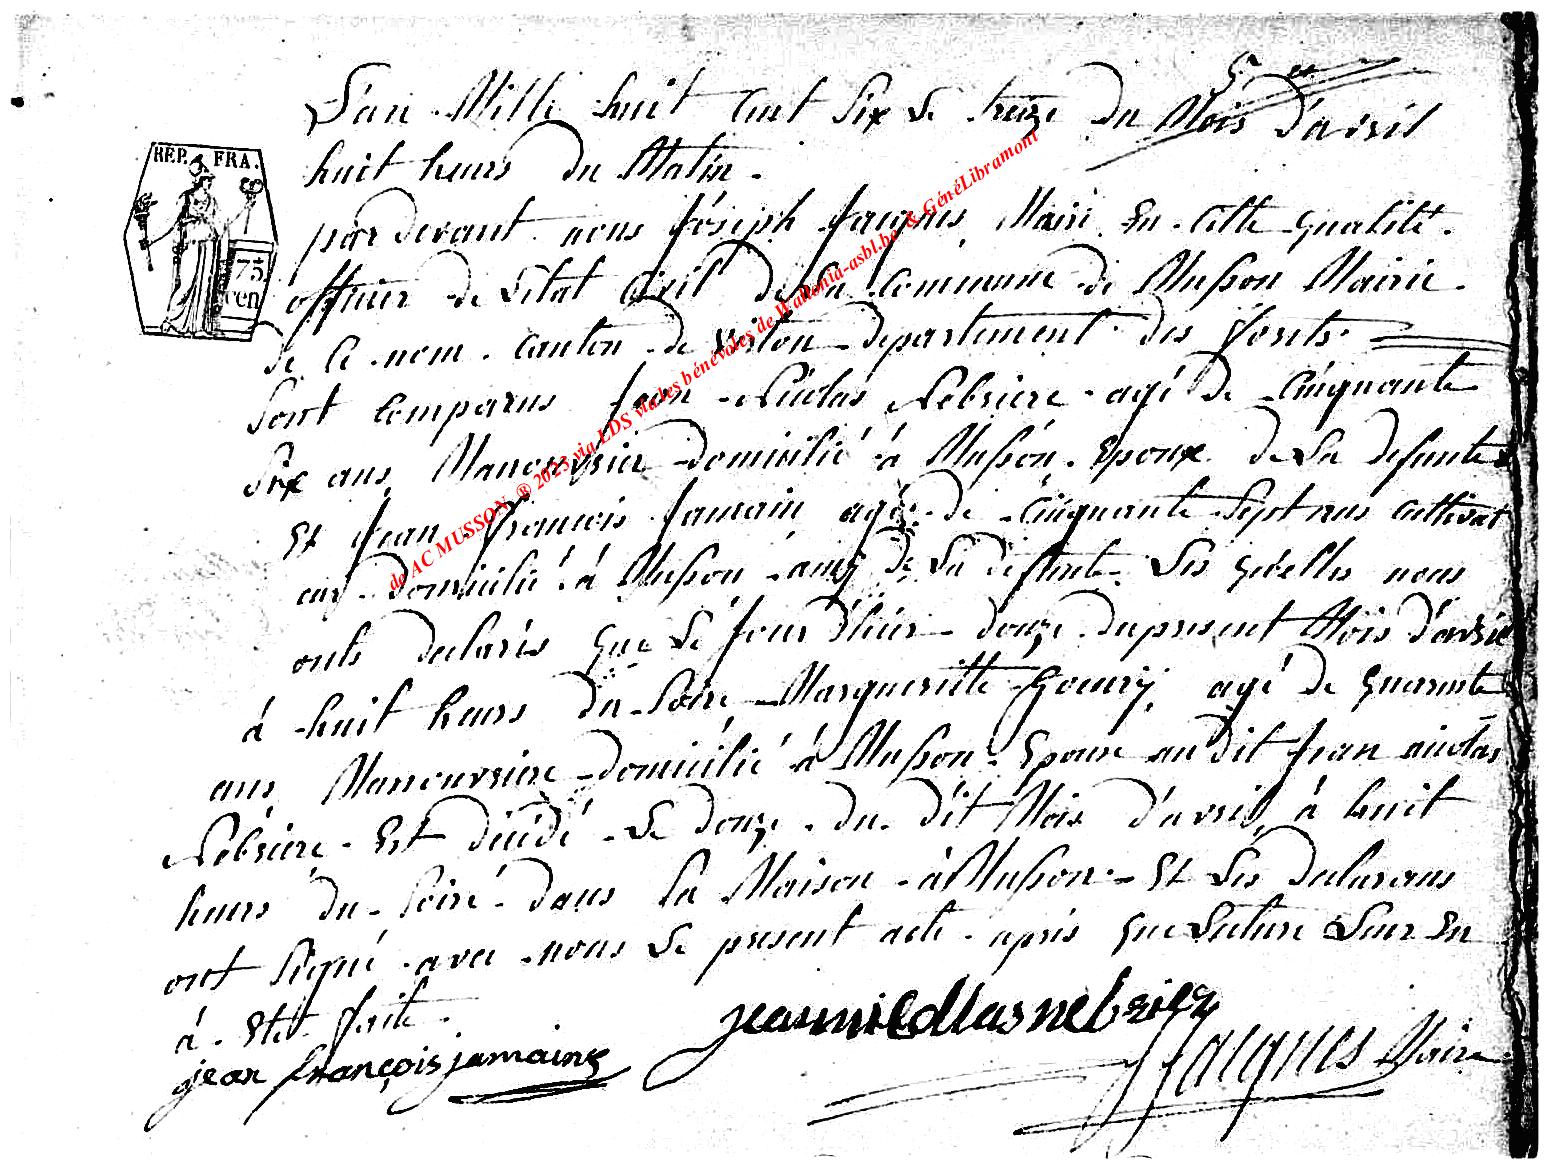 L'an Mille huit cent Six Le treize du Mois d'avril
huit heurs du Matin.
REP. FRA.
75
cen
par devant nous Joseph Jacques Maire En Cette qualité.
officier de L'etat Civil de La Commune de Musson Mairie.
de Ce nom. Canton de Virton departement des forets.
Sont Comparus Jean Nicolas Nebriere agé de Cinquante
Six ans Manouvrier domicilié à Musson. Epoux de La defunte
Et Jean François Jamain agé de Cinquante Sept ans Cultivat
eur domicilié à Musson amij de La defunte. Les quelles nous
onts declarés que Le jour D'hier douze du present Mois d'avril
à huit heurs du Soire Margueritte Gourij agé de quarante
ans Manouvriere domicilié à Musson. Epouse audit Jean nicolas
Nebriere. Est décidé Le douze du dit Mois d'avril à huit
heurs du Soiré dans Sa Maison à Musson. Et Les declarans
ont Signé avec nous Le present acte. après que Lecture Leur En
à Eté faite.
jean nicollas nebrier
jean françois jamain
J Jacques Maire
de AC MUSSON ® 2023 via LDS via les bénévoles de Wallonia-asbl.be & GénéLibramont